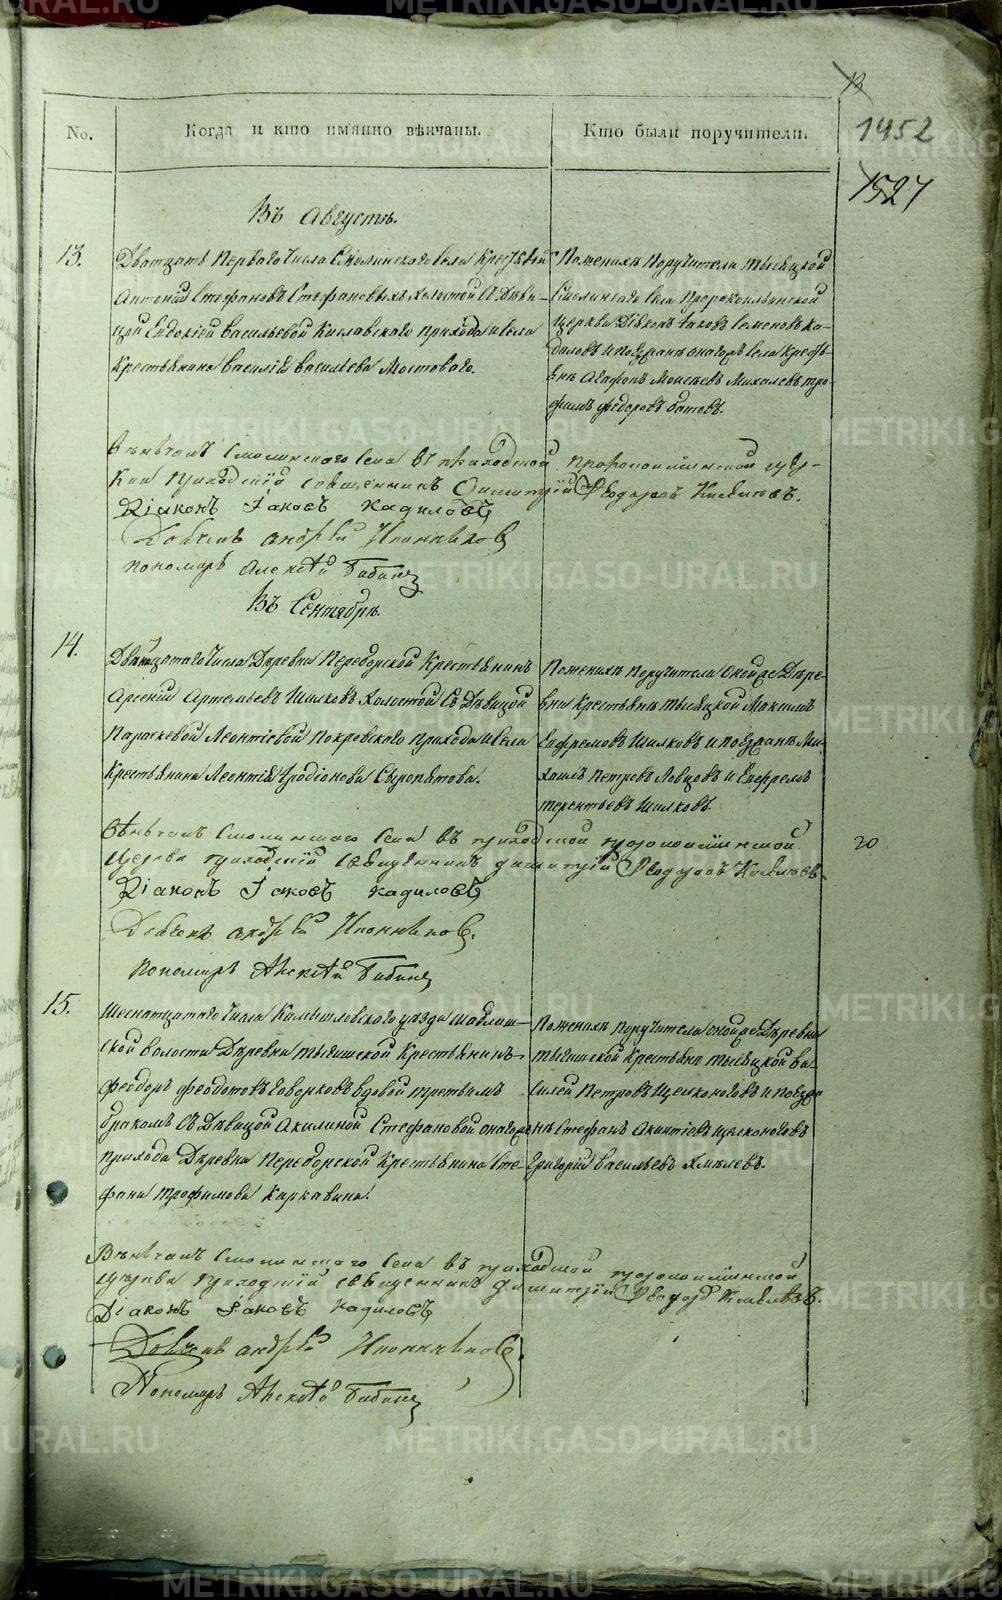 13
No.
Когда и кто имянно вѣнчаны.
Кто были поручители.
1452
1527
Въ Августѣ.
13.
Дватцать перваго числа Смолинскаго села крестьянинъ
Антоній Стефановъ Стефановыхъ холостой съ дѣви-
цой Евдокіей Васильевой Киславскаго прихода и села
крестьянина Василія Васильева Мостоваго.
По женихѣ поручители тысяцкой
Смолинскаго села Пророкоильинской
церкви Діяконъ Іаковъ Семеновъ Ка-
диловъ и поезжанъ онагожъ села кресть-
янъ Агафонъ Моисеевъ Михалевъ Тро-
фимъ Федоровъ Батовъ.
Вѣнчалъ Смолинскаго села въ приходской пророкоильинской цер-
кви приходскій священникъ Димитрій Феодоровъ
Діаконъ Іаковъ Кадиловъ
Дьячекъ Андрей Иконниковъ
Пономарь Алексѣй Бабинъ
Въ Сентябрѣ.
14.
числа Деревни Переборской крестьянинъ
Арсеній Артемьевъ Шилковъ холостой съ дѣвицой
Параскевой Леонтіевой Покровскаго прихода и села
крестьянина Леонтія Иродіонова Сыропятова.
По женихѣ поручители оной же дере-
вни крестьянъ тысяцкой Максимъ
Евфремовъ Шилковъ и поезжанъ Ми-
хаилъ Петровъ Ловцовъ и Ефремъ
Терентьевъ Шилковъ.
Вѣнчалъ Смолинскаго села въ приходской пророкоильинской
церкви приходскій священникъ Димитрій Феодоровъ
20
Діаконъ Іаковъ Кадиловъ
Дьячекъ Андрей Иконниковъ.
Пономарь Алексѣй Бабинъ
15.
Шеснатцатаго числа Камышловскаго уѣзда Шаблиш-
ской волости Деревни Тыгишской крестьянинъ
Феодоръ Феодотовъ Говорковъ вдовой третьимъ
бракомъ съ дѣвицой Акилиной Стефановой онагоже
прихода Деревни Переборской крестьянина Сте
фана Трофимова Каркавина.
По женихѣ поручители оной же деревни
Тыгишской крестьянъ тысяцкой Ва-
силей Петровъ Щелконоговъ и поезжа
нъ Стефанъ Акинтіевъ Щелконоговъ
Григорій Васильевъ Хмѣлевъ.
Вѣнчалъ Смолинскаго села въ приходской пророкоильинской
церкви приходскій священникъ Димитрій Феодоровъ
Діаконъ Іаковъ Кадиловъ
Дьячекъ Андрей Иконниковъ.
Пономарь Алексѣй Бабинъ
METRIKI.GASO-URAL.RU